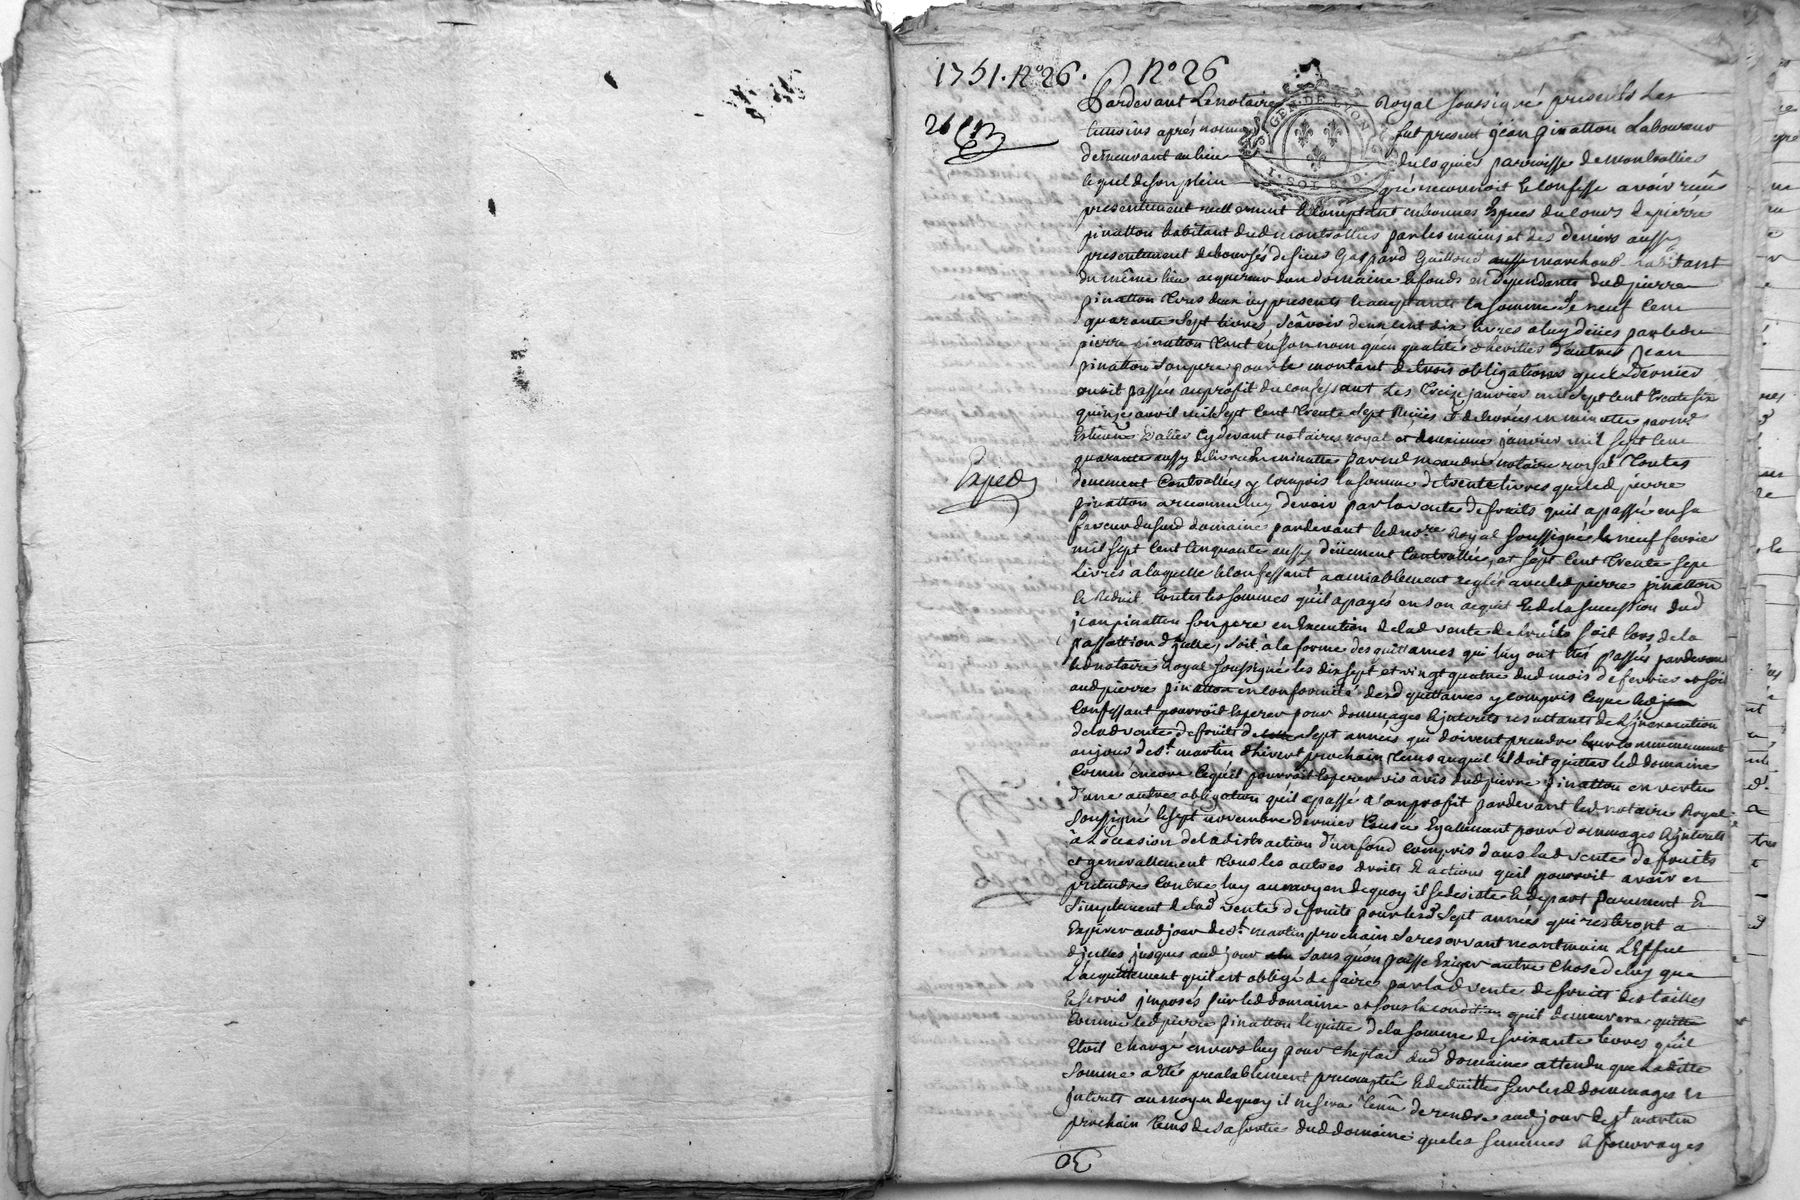 1751. No 26. No 26
Pardevant Le notaire Royal soussigné presents Les
GEN. DE LYON
temoins aprés nommés fut present jean pinatton Laboureur
demeurant au lieu du parroisse de montrottier
I. SOL 8. D.
lequel de son plein gré reconnoit & confesse avoir
presentement reellement & comptant en bonnes Espèces du cours de pierre
pinatton habitant dud montrottier par les mains et des deniers aussy
presentement deboursés de sieur Gaspard Guilloud marchand habitant
du même lieu acquereur d'un domaine & fonds en Dependants dud pierre
pinatton tous deux icy presents & acceptants la somme de neuf cent
quarante sept livres, sçavoir deux cent dix livres a luy deües par led
pierre pinatton tant en son nom qu'en qualité d'heritier d'autre Jean
pinatton son pere pour le montant de trois obligations que ce dernier
avoit passées au profit du confessant Les Treize janvier mil sept cent trente six
quinze avril mil sept cent trente sept Reçües & delivrées en minutte par me
cy devant notaire royal et deuxieme janvier mil sept cent
quarante aussy delivrée en minutte par notaire royal toutes
deuement Controllées y compris la somme de trente livres que led pierre
pinatton a reconnu luy devoir par la vente de fruits qu'il a passée en sa
Exped
faveur dusd domaine pardevant led nore Royal soussigné le neuf fevrier
mil sept cent cinquante aussy düement Controllée, et sept cent trente sept
Livres à laquelle le confessant a amiablement reglé avec led pierre pinatton
toutes les sommes qu'il a payés en son acquit & de la succession dud
jean pinatton son pere en Execution de lad vente de fruits soit lors de la
passation d'icelle, soit à la forme des quittances qui luy ont eté passées pardevant
led notaire Royal soussigné les dix sept et vingt quatre dud mois de fevrier et soit
aud pierre pinatton en conformité desd quittances y compris ce que led
confessant pourroit Esperer pour dommages & jnterets resultants de L'jnexecution
de lad vente de fruits de sept années qui doivent prendre leur commencement
au jour de st martin d'hivert prochain tems auquel il doit quitter led domaine
comme encore ce qu'il pourroit Esperer vis avis dud pierre pinatton en vertu
d'une autre obligation qu'il a passé a son profit pardevant led notaire Royal
soussigné le sept novembre dernier Causée Egallement pour dommages & jnterets
à l'occasion de la distraction d'un fond compris dans lad vente de fruits
et generallement tous les autres droits & actions qu'il pourroit avoir et
pretendre contre luy au moyen de quoy il se desiste & depart purement &
simplement de lad vente de fruits pour lesd sept années qui resteront a
Expirer aud jour de st martin prochain se reservant neantmoin L'Effet
d'icelle jusques aud jour sans qu'on puisse Exiger autre chose de luy que
L'acquittement qu'il est obligé de faire par lad vente de fruits des tailles
& servis jmposés sur led domaine et sous la condition qu'il demeurera quitte
comme led pierre pinatton le quitte de la somme de soixante livres qu'il
Etoit chargé envers luy pour cheptait dud domaine attendu que Ladite
somme a eté prealablement precomptée & deduitte sur lesd dommages et
jnterets au moyen de quoy il ne sera tenû de rendre aud jour de st martin
prochain tems de sa sortie dud domaine que les semences & fourrages